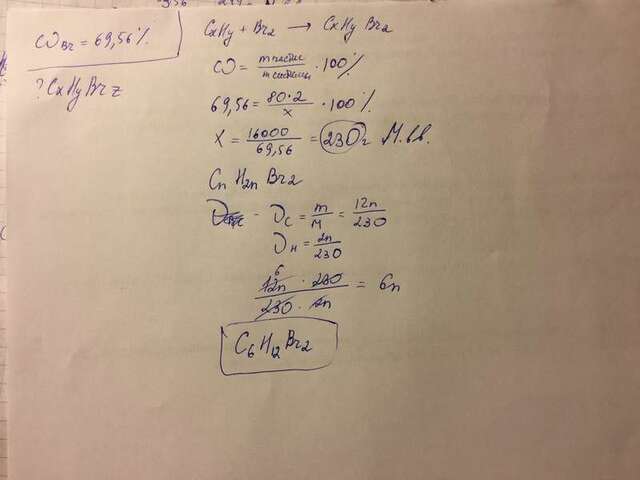 ωBr = 69,56%
? CxHyBrz
CxHy + Br2 → CxHyBr2
ω = m части / m системы · 100%
69,56 = 80·2 / x · 100%
X = 16000 / 69,56 = 230г М.вв.
CnH2nBr2
νC = m/M = 12n/230
νH = 2n/230
6
12n · 230 / 230 · 2n = 6n
C6H12Br2